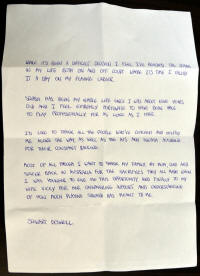 WHILE IT'S BEEN A DIFFICULT DECISION I FEEL I'VE REACHED THE STAGE
IN MY LIFE BOTH ON AND OFF COURT WHERE IT'S TIME I CALLED
IT A DAY ON MY PLAYING CAREER.
SQUASH HAS BEEN MY WHOLE LIFE SINCE I WAS ABOUT FOUR YEARS
OLD AND I FEEL EXTREMELY FORTUNATE TO HAVE BEEN ABLE
TO PLAY PROFESSIONALLY FOR AS LONG AS I HAVE.
I'D LIKE TO THANK ALL THE PEOPLE WHO'VE COACHED AND HELPED
ME ALONG THE WAY, AS WELL AS THE AIS AND SQUASH AUSTRALIA
FOR THEIR CONSTANT BACKING.
MOST OF ALL THOUGH I WANT TO THANK MY FAMILY, MY MUM, DAD AND
BACK IN AUSTRALIA FOR THE SACRIFICES THEY ALL MADE WHEN
I WAS YOUNGER TO GIVE ME THIS OPPORTUNITY AND FINALLY TO MY
WIFE VICKY FOR HER UNWAVERING SUPPORT AND UNDERSTANDING
OF HOW MUCH PLAYING SQUASH HAS MEANT TO ME.
STEWART BOSWELL.